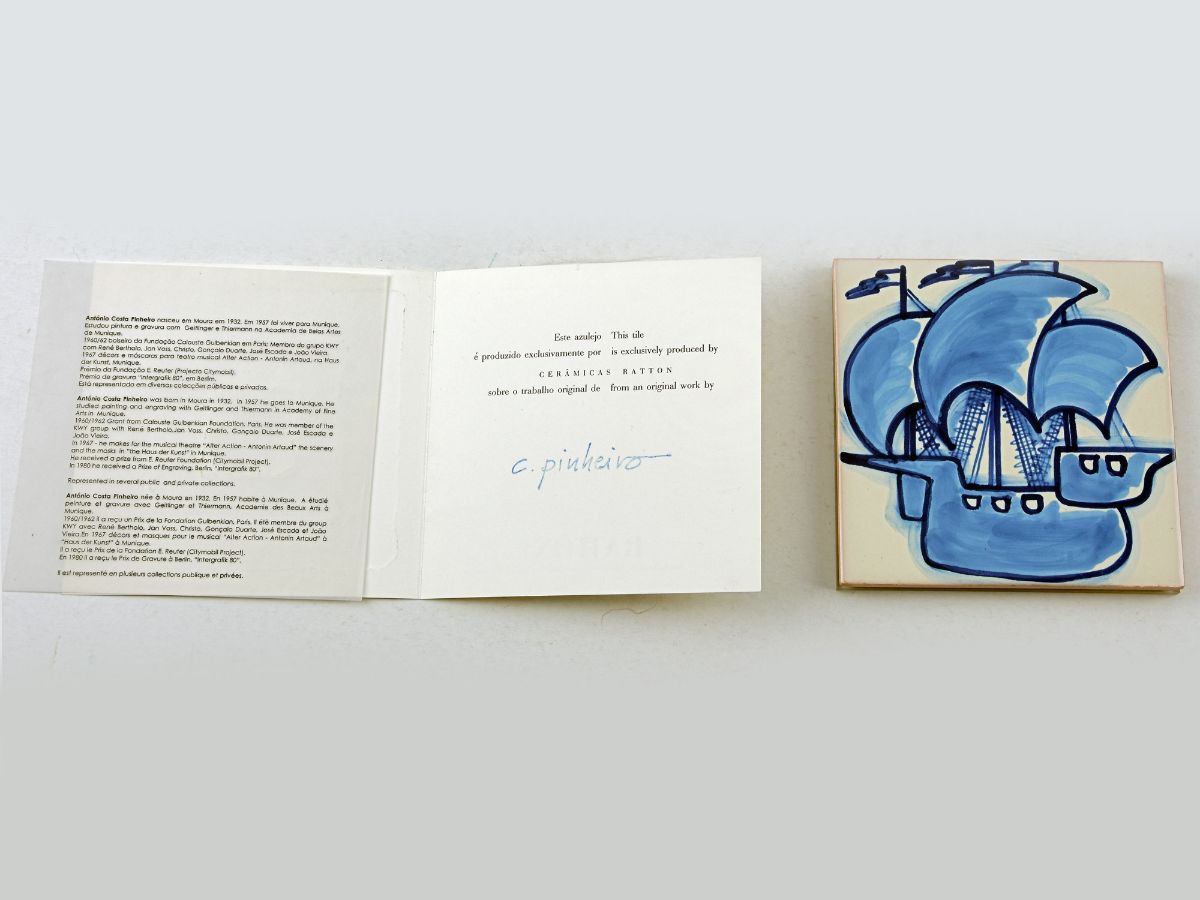 António Costa Pinheiro nasceu em Moura em 1932. Em 1957 foi viver para Munique.
Estudou pintura e gravura com Geitlinger e Thiermann na Academia de Belas Artes
de Munique.
1960/62 bolseiro da Fundação Calouste Gulbenkian em Paris; Membro do grupo KWY
com René Bertholo, Jan Voss, Christo, Gonçalo Duarte, José Escada e João Vieira.
1967 décors e máscaras para teatro musical Alter Action - Antonin Artaud, na Haus
der Kunst, Munique.
Prémio da Fundação E. Reuter (Projecto Citymobil).
Prémio de gravura "Intergrafik 80", em Berlim.
Está representado em diversas colecções públicas e privadas.
António Costa Pinheiro was born in Moura in 1932. In 1957 he goes to Munich. He
studied painting and engraving with Geitlinger and Thiermann in Academy of Fine
Arts in Munique.
1960/1962 Grant from Calouste Gulbenkian Foundation, Paris. He was member of the
KWY group with René Bertholo,Jan Voss, Christo, Gonçalo Duarte, José Escada e
João Vieira.
In 1967 - he makes for the musical theatre "Alter Action - Antonin Artaud" the scenery
and the masks in "the Haus der Kunst" in Munique.
He received a prize from E. Reuter Foundation (Citymobil Project).
In 1980 he received a Prize of Engraving, Berlin, "Intergrafik 80".
Represented in several public and private collections.
António Costa Pinheiro née à Moura en 1932. En 1957 habite à Munique. A étudié
peinture et gravure avec Geitlinger et Thiermann, Academie des Beaux Arts à
Munique.
1960/1962 il a reçu un Prix de la Fondation Gulbenkian, Paris. Il été membre du group
KWY avec René Bertholo, Jan Voss, Christo, Gonçalo Duarte, José Escada et João
Vieira.En 1967 décors et masques pour le musical "Alter Action - Antonin Artaud" à
"Haus der Kunst" à Munique.
Il a reçu le Prix de la Fondation E. Reuter (Citymobil Project).
En 1980 il a reçu le Prix de Gravure à Berlin, "Intergrafik 80".
Il est representé en plusieurs collections publique et privées.
Este azulejo This tile
é produzido exclusivamente por is exclusively produced by
CERÂMICAS RATTON
sobre o trabalho original de from an original work by
c. pinheiro